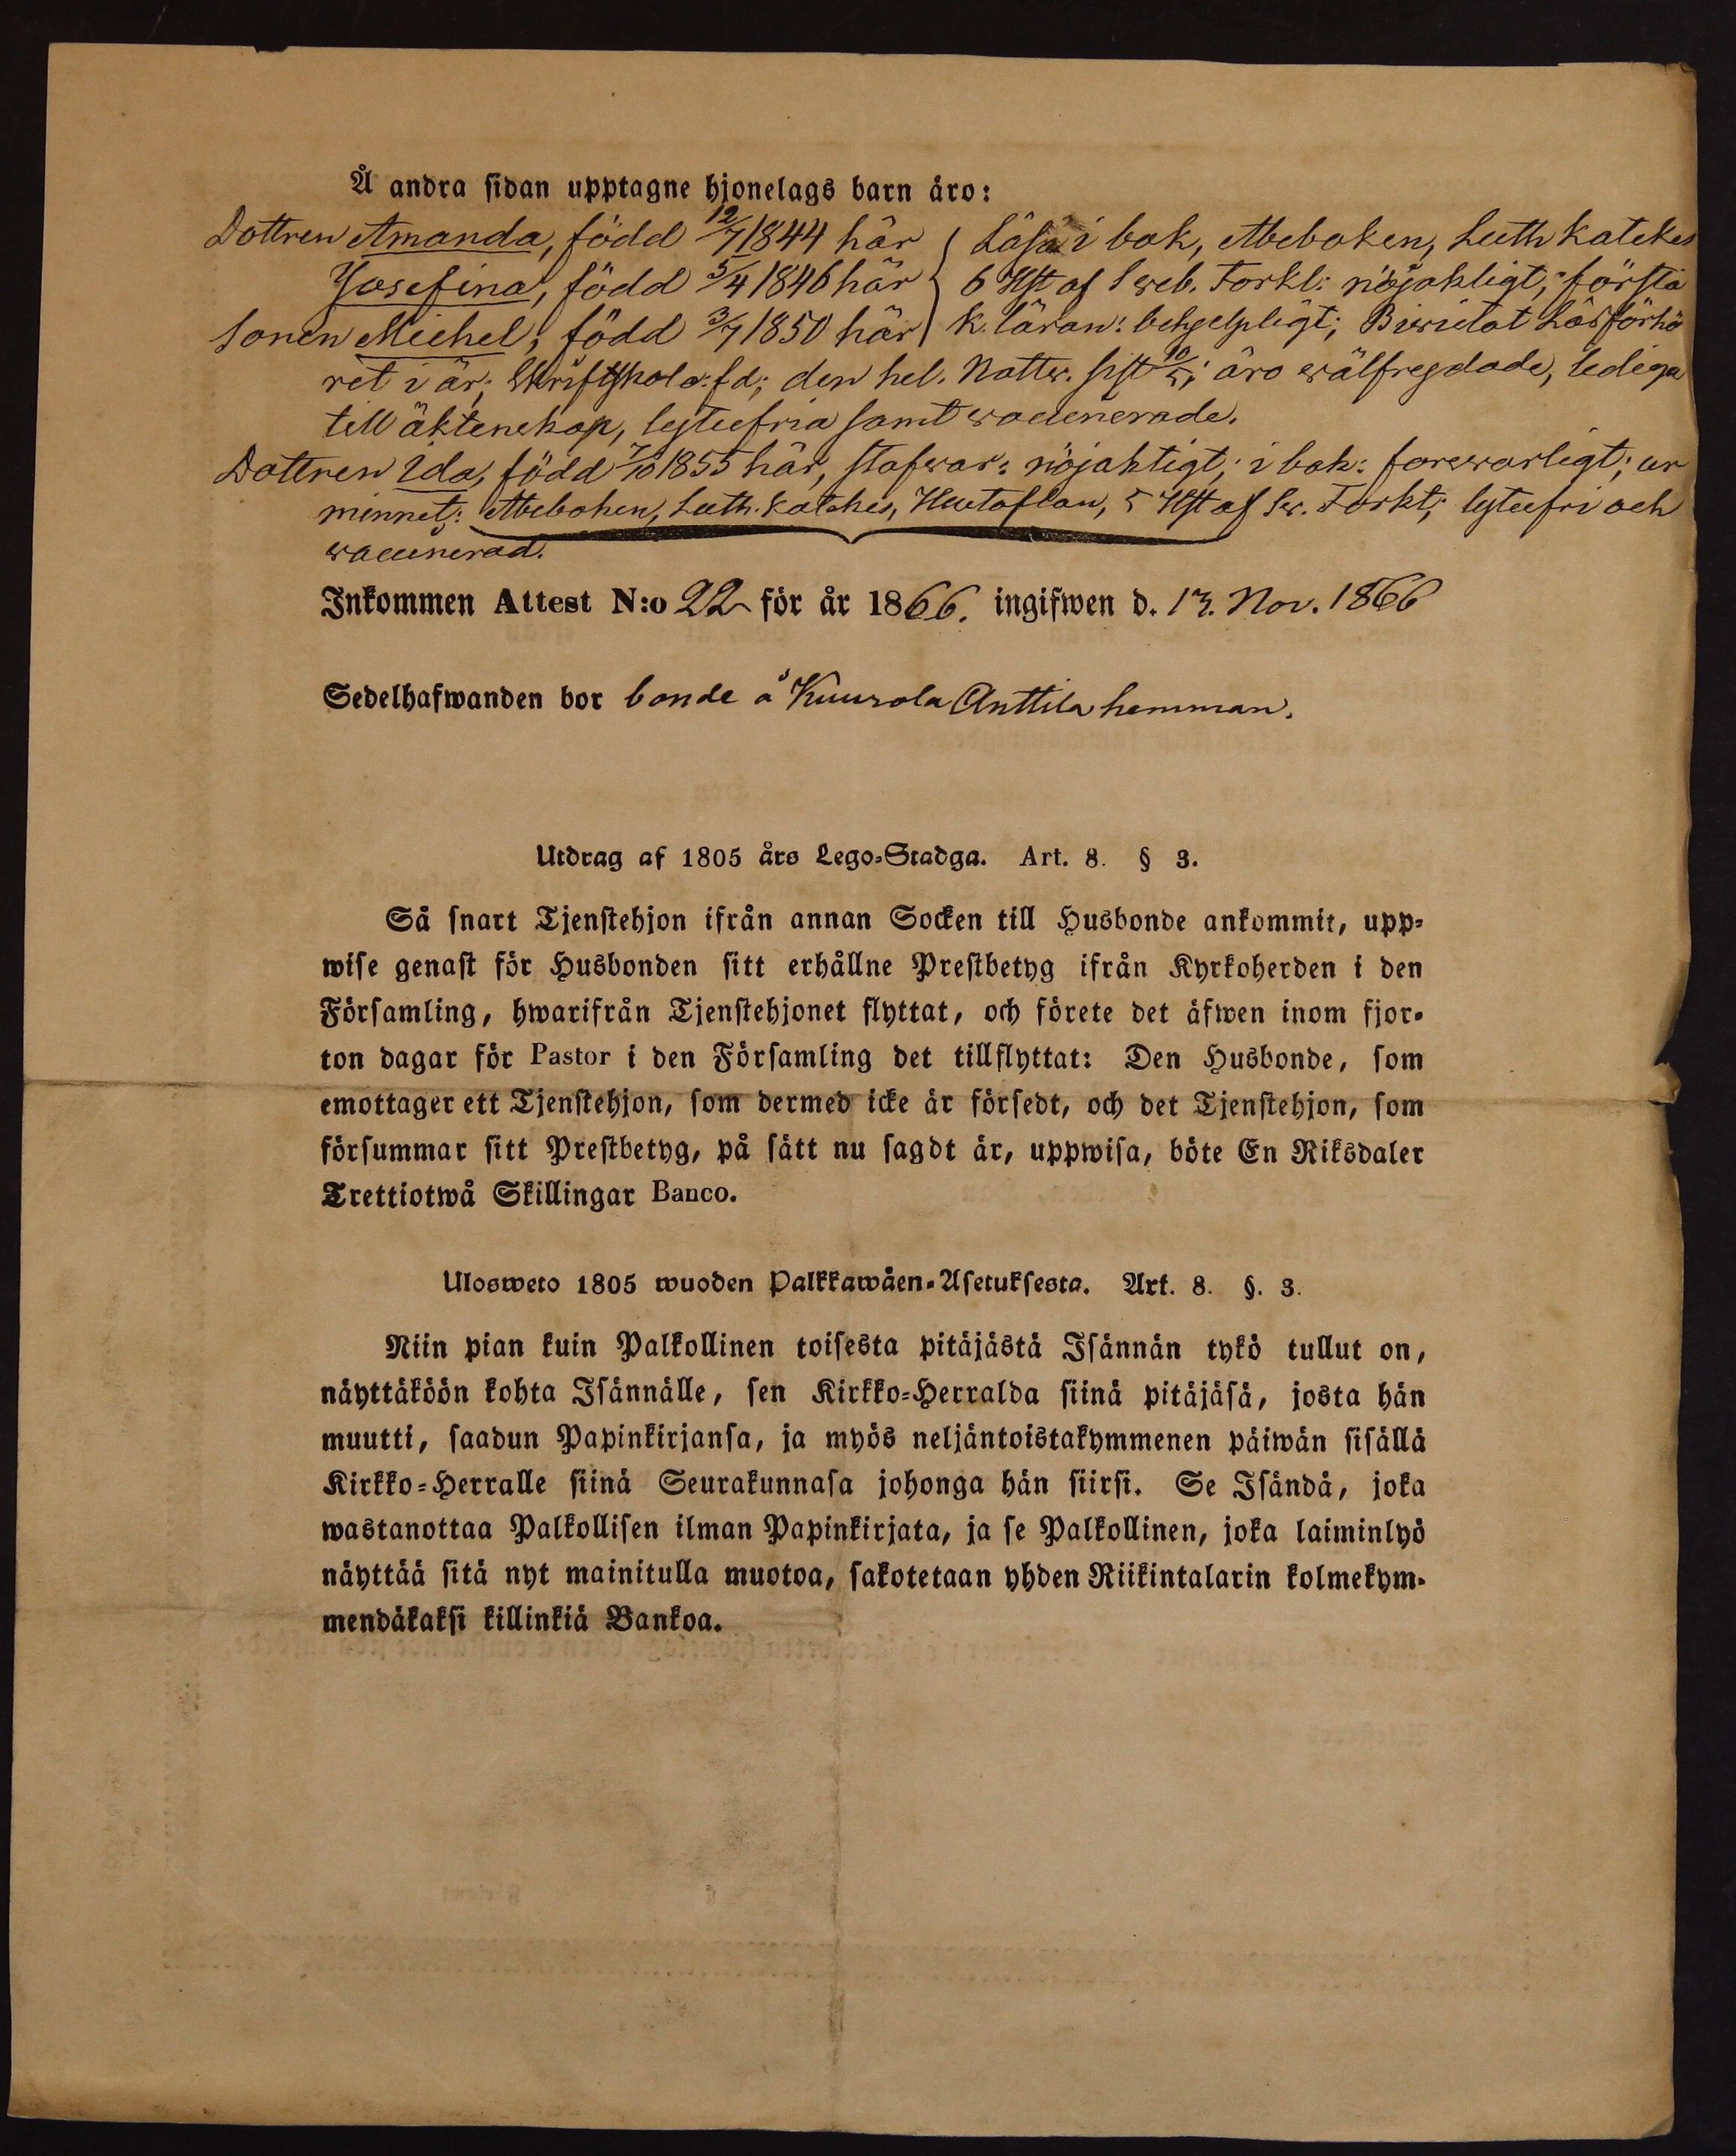 Å andra sidan upptagne hjonelags barn äro:
Dottren Amanda, född 12/7 1844 här
Josefina, född 5/4 1846 här
Sonen Michel, född 3/7 1850 här
Läsa i bok, Abeboken, Luth katekes
6 Hst af Sweb. Förkl: nöjaktigt; förstå
k. läran: behjelpligt; Biwistat Läsförhö
ret i år; Skriftskola: fd; den hel. Nattw. sist 10/5; äro wälfregdade, lediga
till äktenskap, lytesfria samt waccinerade.
Dottren Ida, född 7/10 1855 här, stafwar: nöjaktigt; i bok: forswarligt; ur
minnet: Abeboken, Luth. katekes, Hustaflan, 5 Hst af Sw. Förkl; lytesfri och
waccinerad.
Inkommen Attest N:o 22 för år 1866. ingifwen d. 13. Nov. 1866
Sedelhafwanden bor bonde å Kuurola Anttila hemman.
Utdrag af 1805 års Lego-Stadga. Art. 8. § 3.
Så snart Tjenstehjon ifrån annan Socken till Husbonde ankommit, upp-
wise genast för Husbonden sitt erhållne Prestbetyg ifrån Kyrkoherden i den
Församling, hwarifrån Tjenstehjonet flyttat, och förete det äfwen inom fjor-
ton dagar för Pastor i den Församling det tillflyttat: Den Husbonde, som
emottager ett Tjenstehjon, som dermed icke är försedt, och det Tjenstehjon, som
försummar sitt Prestbetyg, på sätt nu sagdt är, uppwisa, böte En Riksdaler
Trettiotwå Skillingar Banco.
Ulosweto 1805 wuoden Palkkawäen-Asetuksesta. Art. 8. §. 3.
Niin pian kuin Palkollinen toisesta pitäjästä Isännän tykö tullut on,
näyttäköön kohta Isännälle, sen Kirkko-Herralda siinä pitäjäsä, josta hän
muutti, saadun Papinkirjansa, ja myös neljäntoistakymmenen päiwän sisällä
Kirkko-Herralle siinä Seurakunnasa johonga hän siirsi. Se Isändä, joka
wastanottaa Palkollisen ilman Papinkirjata, ja se Palkollinen, joka laiminlyö
näyttää sitä nyt mainitulla muotoa, sakotetaan yhden Riikintalarin kolmekym-
mendäkaksi killinkiä Bankoa.